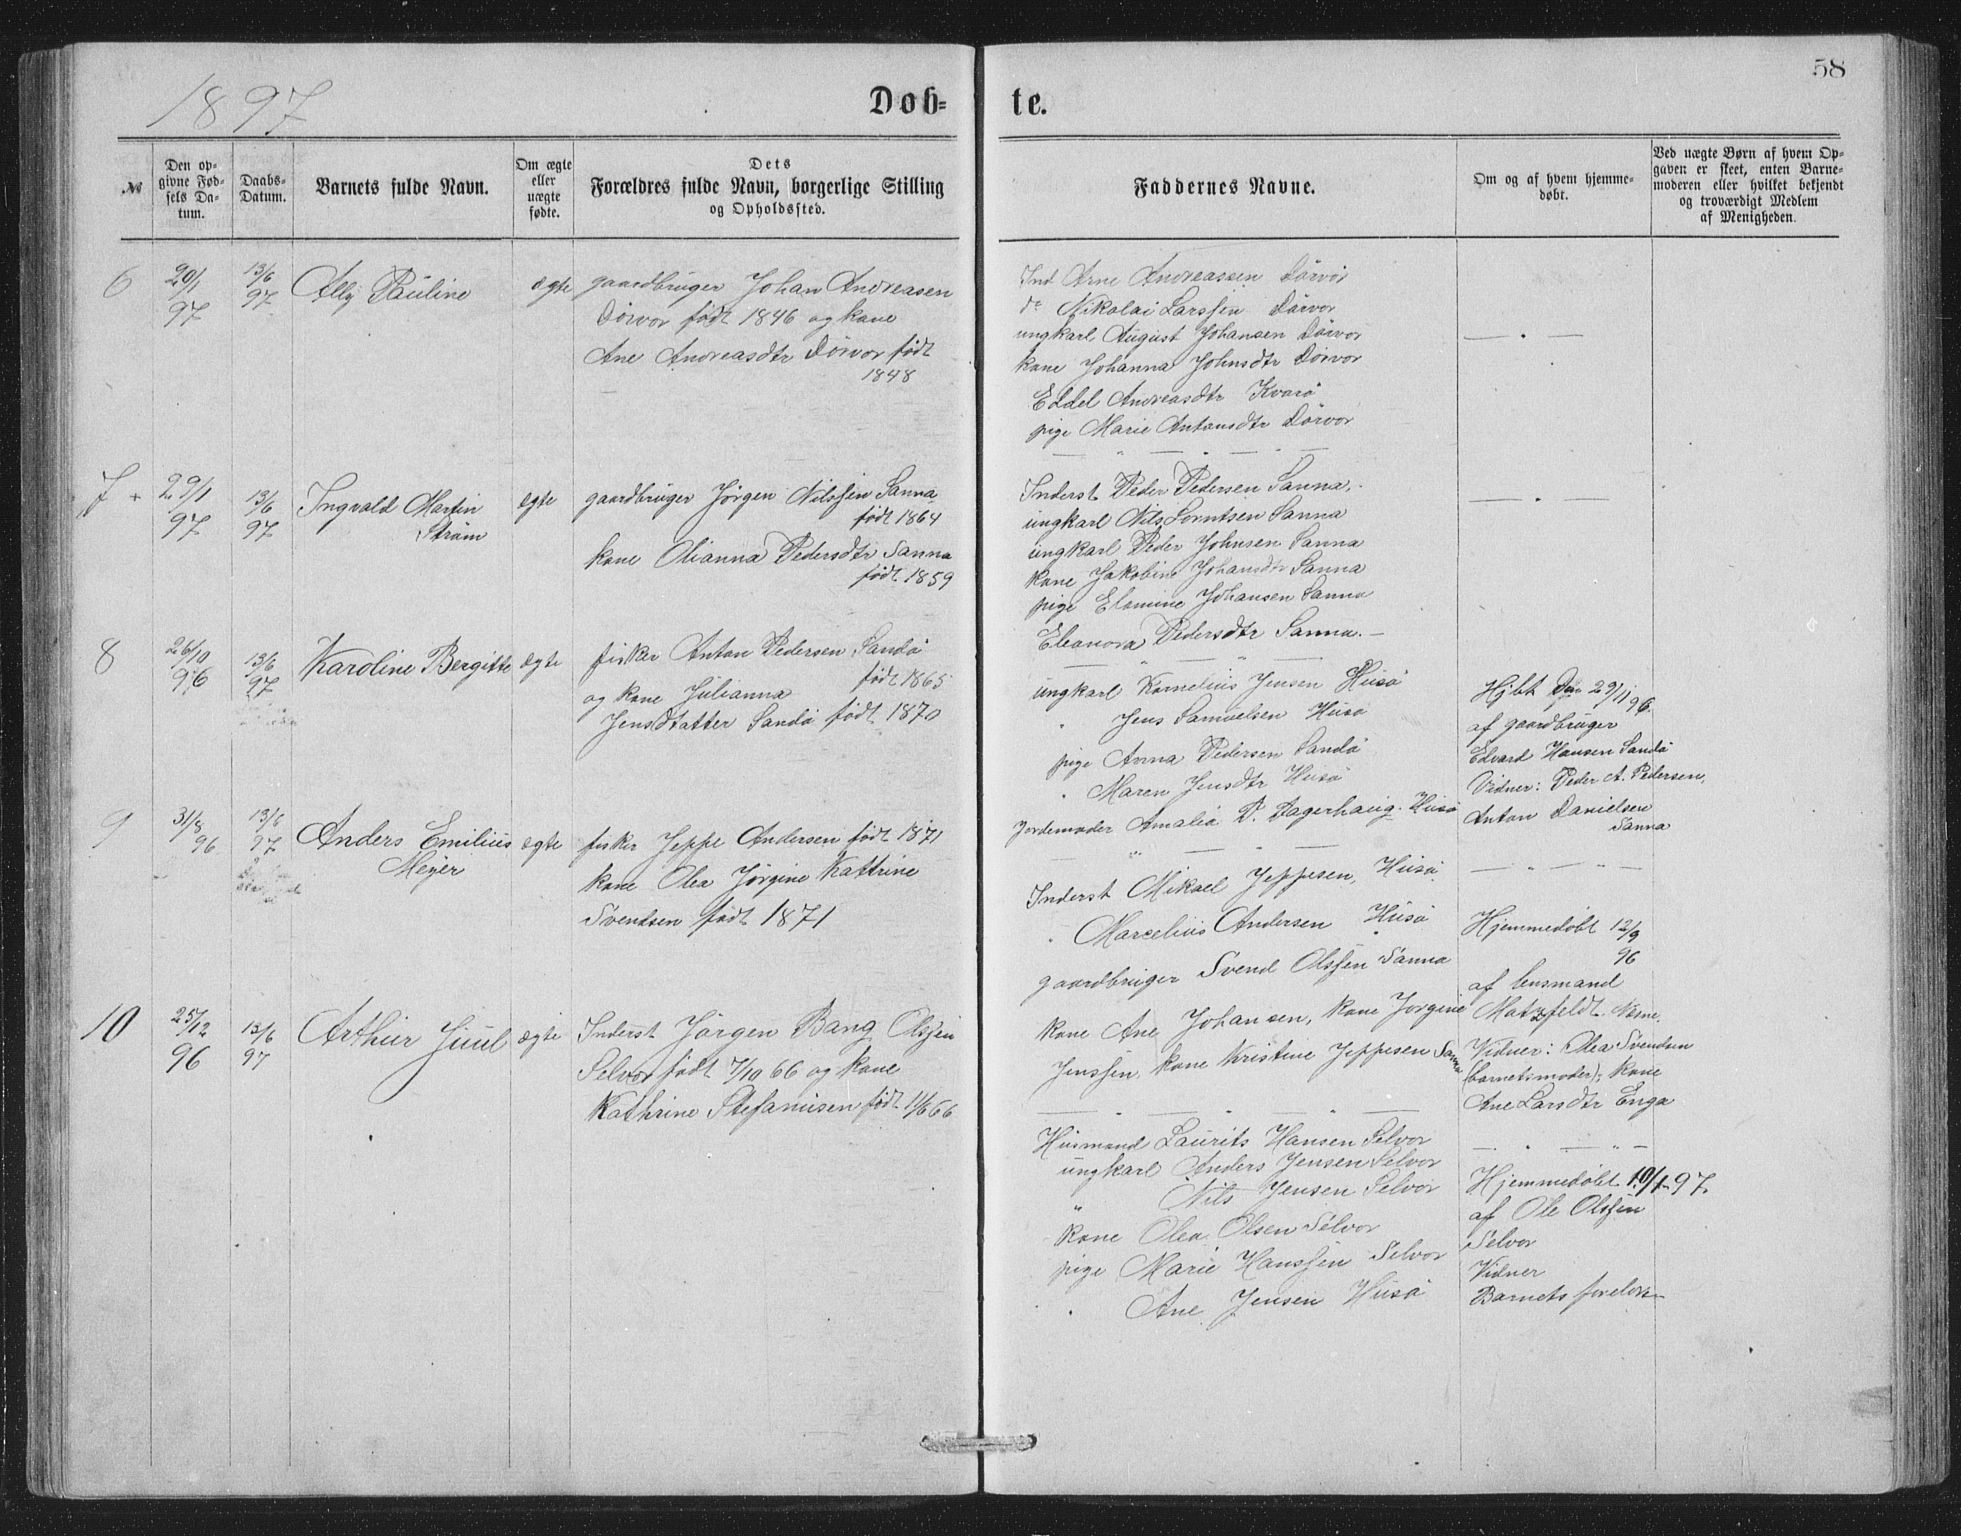 1897
Døb-
te.
58
№
Den op-
givne Fød-
sels Da-
tum.
Daabs-
Datum.
Barnets fulde Navn.
Om ægte
eller
uægte
fødte.
Dets
Forældres fulde Navn, borgerlige Stilling
og Opholdssted.
Faddernes Navne.
Om og af hvem hjemme-
døbt.
Ved uægte Børn af hvem Op-
gaven er skeet, enten Barne-
moderen eller hvilket bekjendt
og troværdigt Medlem
af Menigheden.
6
20/1
97
13/6
97
Ally Pauline
ægte
gaardbruger Johan Andreasen
Dörvor født 1846 og kone
Ane Andreasdtr Dörvor født
1848
Ind Arne Andreassen Dörvör
do Nikolai Larssen Dörvor
ungkarl August Johansen Dörvor
kone Johanna Johnsdtr Dörvor
Eddel Andreasdtr Kvarö
pige Marie Antonsdtr Dörvor
7 +
29/1
97
13/6
97
Ingvald Martin
Ström
ægte
gaardbruger Jörgen Nilssen Sanna
født 1864
kone Olianna Pedersdtr Sanna
født 1859
Inderst Peder Pedersen Sanna.
ungkarl Nils Lorntsen Sanna
ungkarl Peder Johnsen Sanna
kone Jakobine Johansdtr Sanna
pige Elamine Johansen Sanna
Eleanora Pedersdtr Sanna.
8
26/10
96
13/6
97
Karoline Bergitte
ægte
fisker Anton Pedersen Sandö
født 1865
og kone Julianna
Jensdtatter Sandö født 1870
ungkarl Kornelius Jensen Husö
" Jens Samuelsen Husö
pige Anna Pedersen Sandö
" Maren Jensdtr Husö
Jordemoder Amalia D. Dagerhaug. Husö
Hjbt den 29/11 96.
af gaardbruger
Edvard Hansen Sandö
Vidner: Peder A. Pedersen,
Anton Danielsen
Sanna
9
31/8
96
13/6
97
Anders Emilius
Meyer
ægte
fisker Jeppe Andersen født 1871
kone Olea Jørgine Kattrine
Svendsen født 1871
Inderst Mikael Jeppesen, Husö
" Marcelius Andersen Husö
gaardbruger Svend Olssen Sanna
kone Ane Johansen, kone Jorgine
Jenssen, kone Kristine Jeppesen Sanna
Hjemmedöbt 12/9
96
af lensmand
Matzfeldt. Næsne.
Vidner: Olea Svendsen
(barnetsmoder); kone
Ane Larsdtr Enga
10
25/12
96
13/6
97
Arthur Juul
ægte
Inderst Jörgen Bang Olssen
Selvor født 7/10 66 og kone
Kathrine Stefanusen født 11/6 66
Husmand Laurits Hansen Selvor
ungkarl Anders Jensen Selvor
" Nils Jensen Selvor
kone Olea Olsen Selvor
pige Marie Hanssen Selvor
" Ane Jensen Husö
Hjemmedöbt 10/1-97.
af Ole Olssen
Selvor
Vidner
Barnets forældre